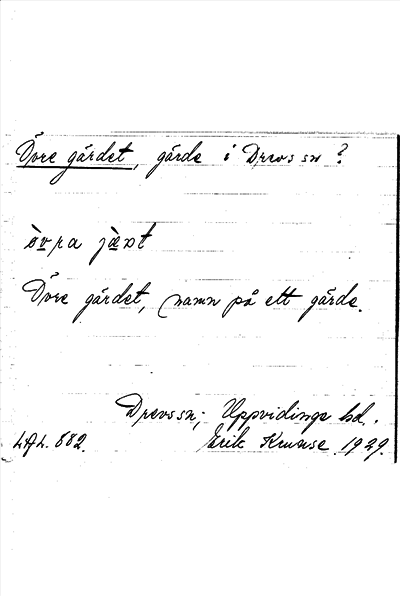 Övre gärdet, gärde i Drevs sn?
òvra jæ̀ṣt
Övre gärdet, namn på ett gärde.
Drevs sn; Uppvidinge hd.
LAL. 682. Erik Kruuse 1929.